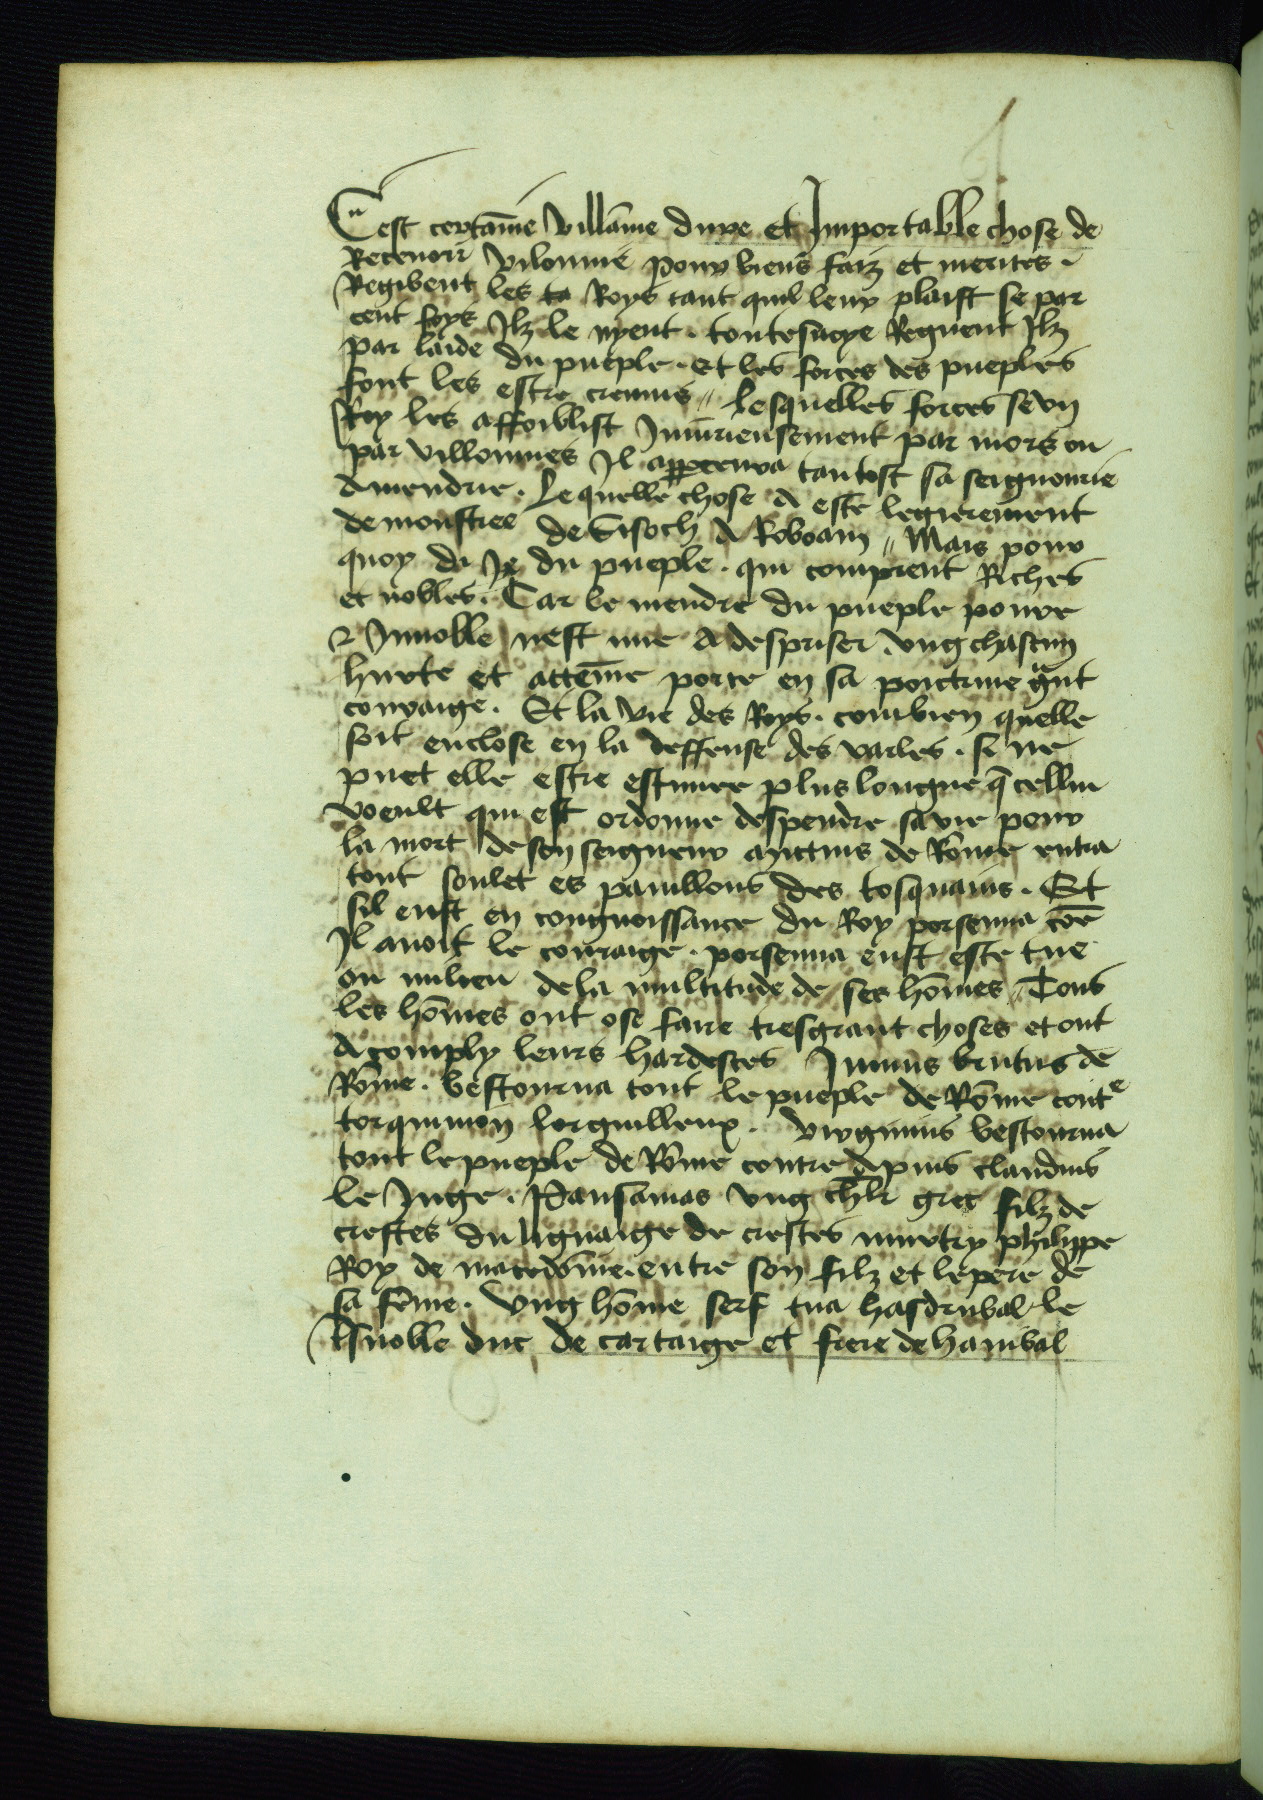 Cest certaīne villāine dure et Importable chose de
Recevoir vilonnie pour biens faiz et merites .
Regibent les ta Roys tant quil leur plaist se par
cent foys Ilz le nyent . toutesuoye Regnent Ilz
par laide du pueple . Et les forces des pueples
font les estre cremus // Lesquelles forces se ung
Roy les affoiblist Iniurieusement par mors ou
par villonnies Il appercevra tantost sa seignourie
Amendrie . Lequelle chose A este legierement
demoustree de Sisoch A Roboam // Mais pour
quoy di Je du pueple . qui comprent Riches
et nobles . Car le mendre du pueple povre
& Innoble nest mie A despriser . ung chascun
hurte et attēme porte en sa poictrine gūt
couraige . Et la vie des Roys . combien quelle
soit enclose en la deffense des varles . si ne
puet elle estre estimee plus longue q̄ cellui
voeult qui est ordonne despendre sa vie pour
la mort de son seigneur . Mucius de Rōme entra
tout seulet es paveillons des tosquains . Et
sil eust eu congnoissance du Roy porsenna cōe
Il avoit le couraige . porsenna eust este tue
ou milieu de la multitude de ses hōmes // Tous
les hōmes ont ose faire tresgrant choses et ont
Acomply leurs hardesces Junius brutus de
Rōme . bestourna tout le pueple de Rōme cont^e
torquinion lorguilleux . virginius bestourna
tout le pueple de Rōme contre Apius claudius
le Juge . Pausanias ung chlr grec filz de
crestes du lignaige de crestes murtry philippe
Roy de macedōine . entre son filz et le pere de
sa fēme . Ung hōme serf tua hasdrubal le
Tsnoble duc de cartaige et frere de hanibal